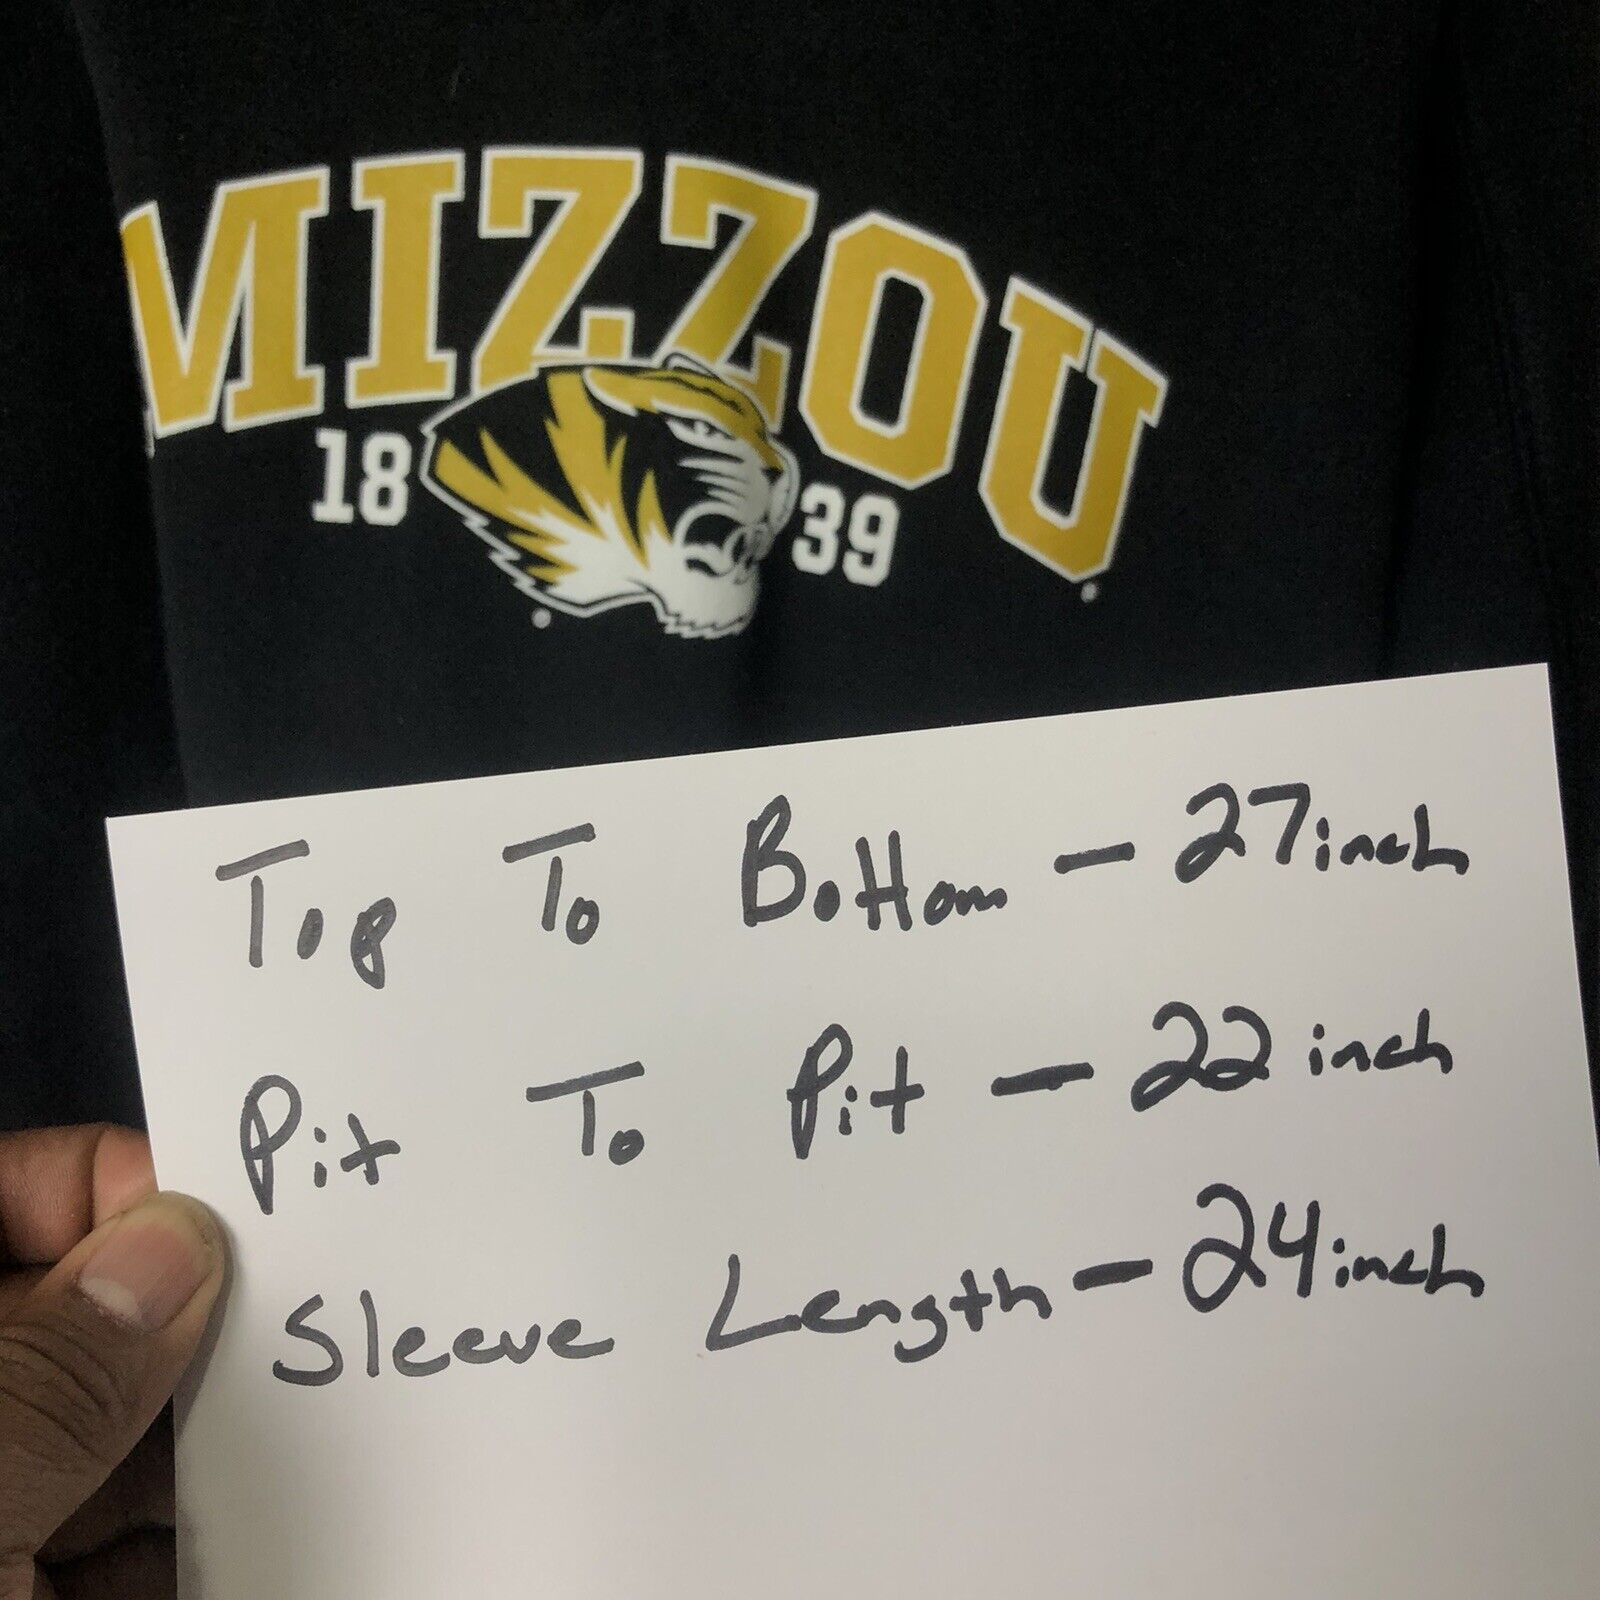 MIZZOU
18 39
Top To Bottom - 27 inch
Pit To Pit - 22 inch
Sleeve Length - 24 inch